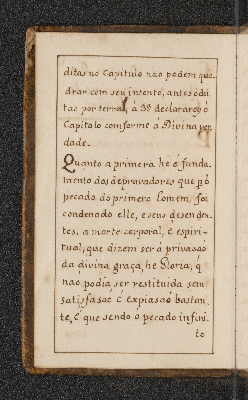 ditas no Capitulo não podem qua
drar com seu intento, antes o di
tao por terra, á 3ª declararey o
Capitolo comforme á Divina ver
dade.
Quanto a primera he o funda
mento dos depravadores que pº
pecado do primero homem, foi
condenado elle, e seus desenden
tes, a morte corporal, é espiri-
tual, que dizem ser á privasaõ
da divina graça, he Gloria, q̃
naõ podia ser restituida sem
satisfasaõ é expiasaõ bastan
te, é que sendo o pecado infini-
to